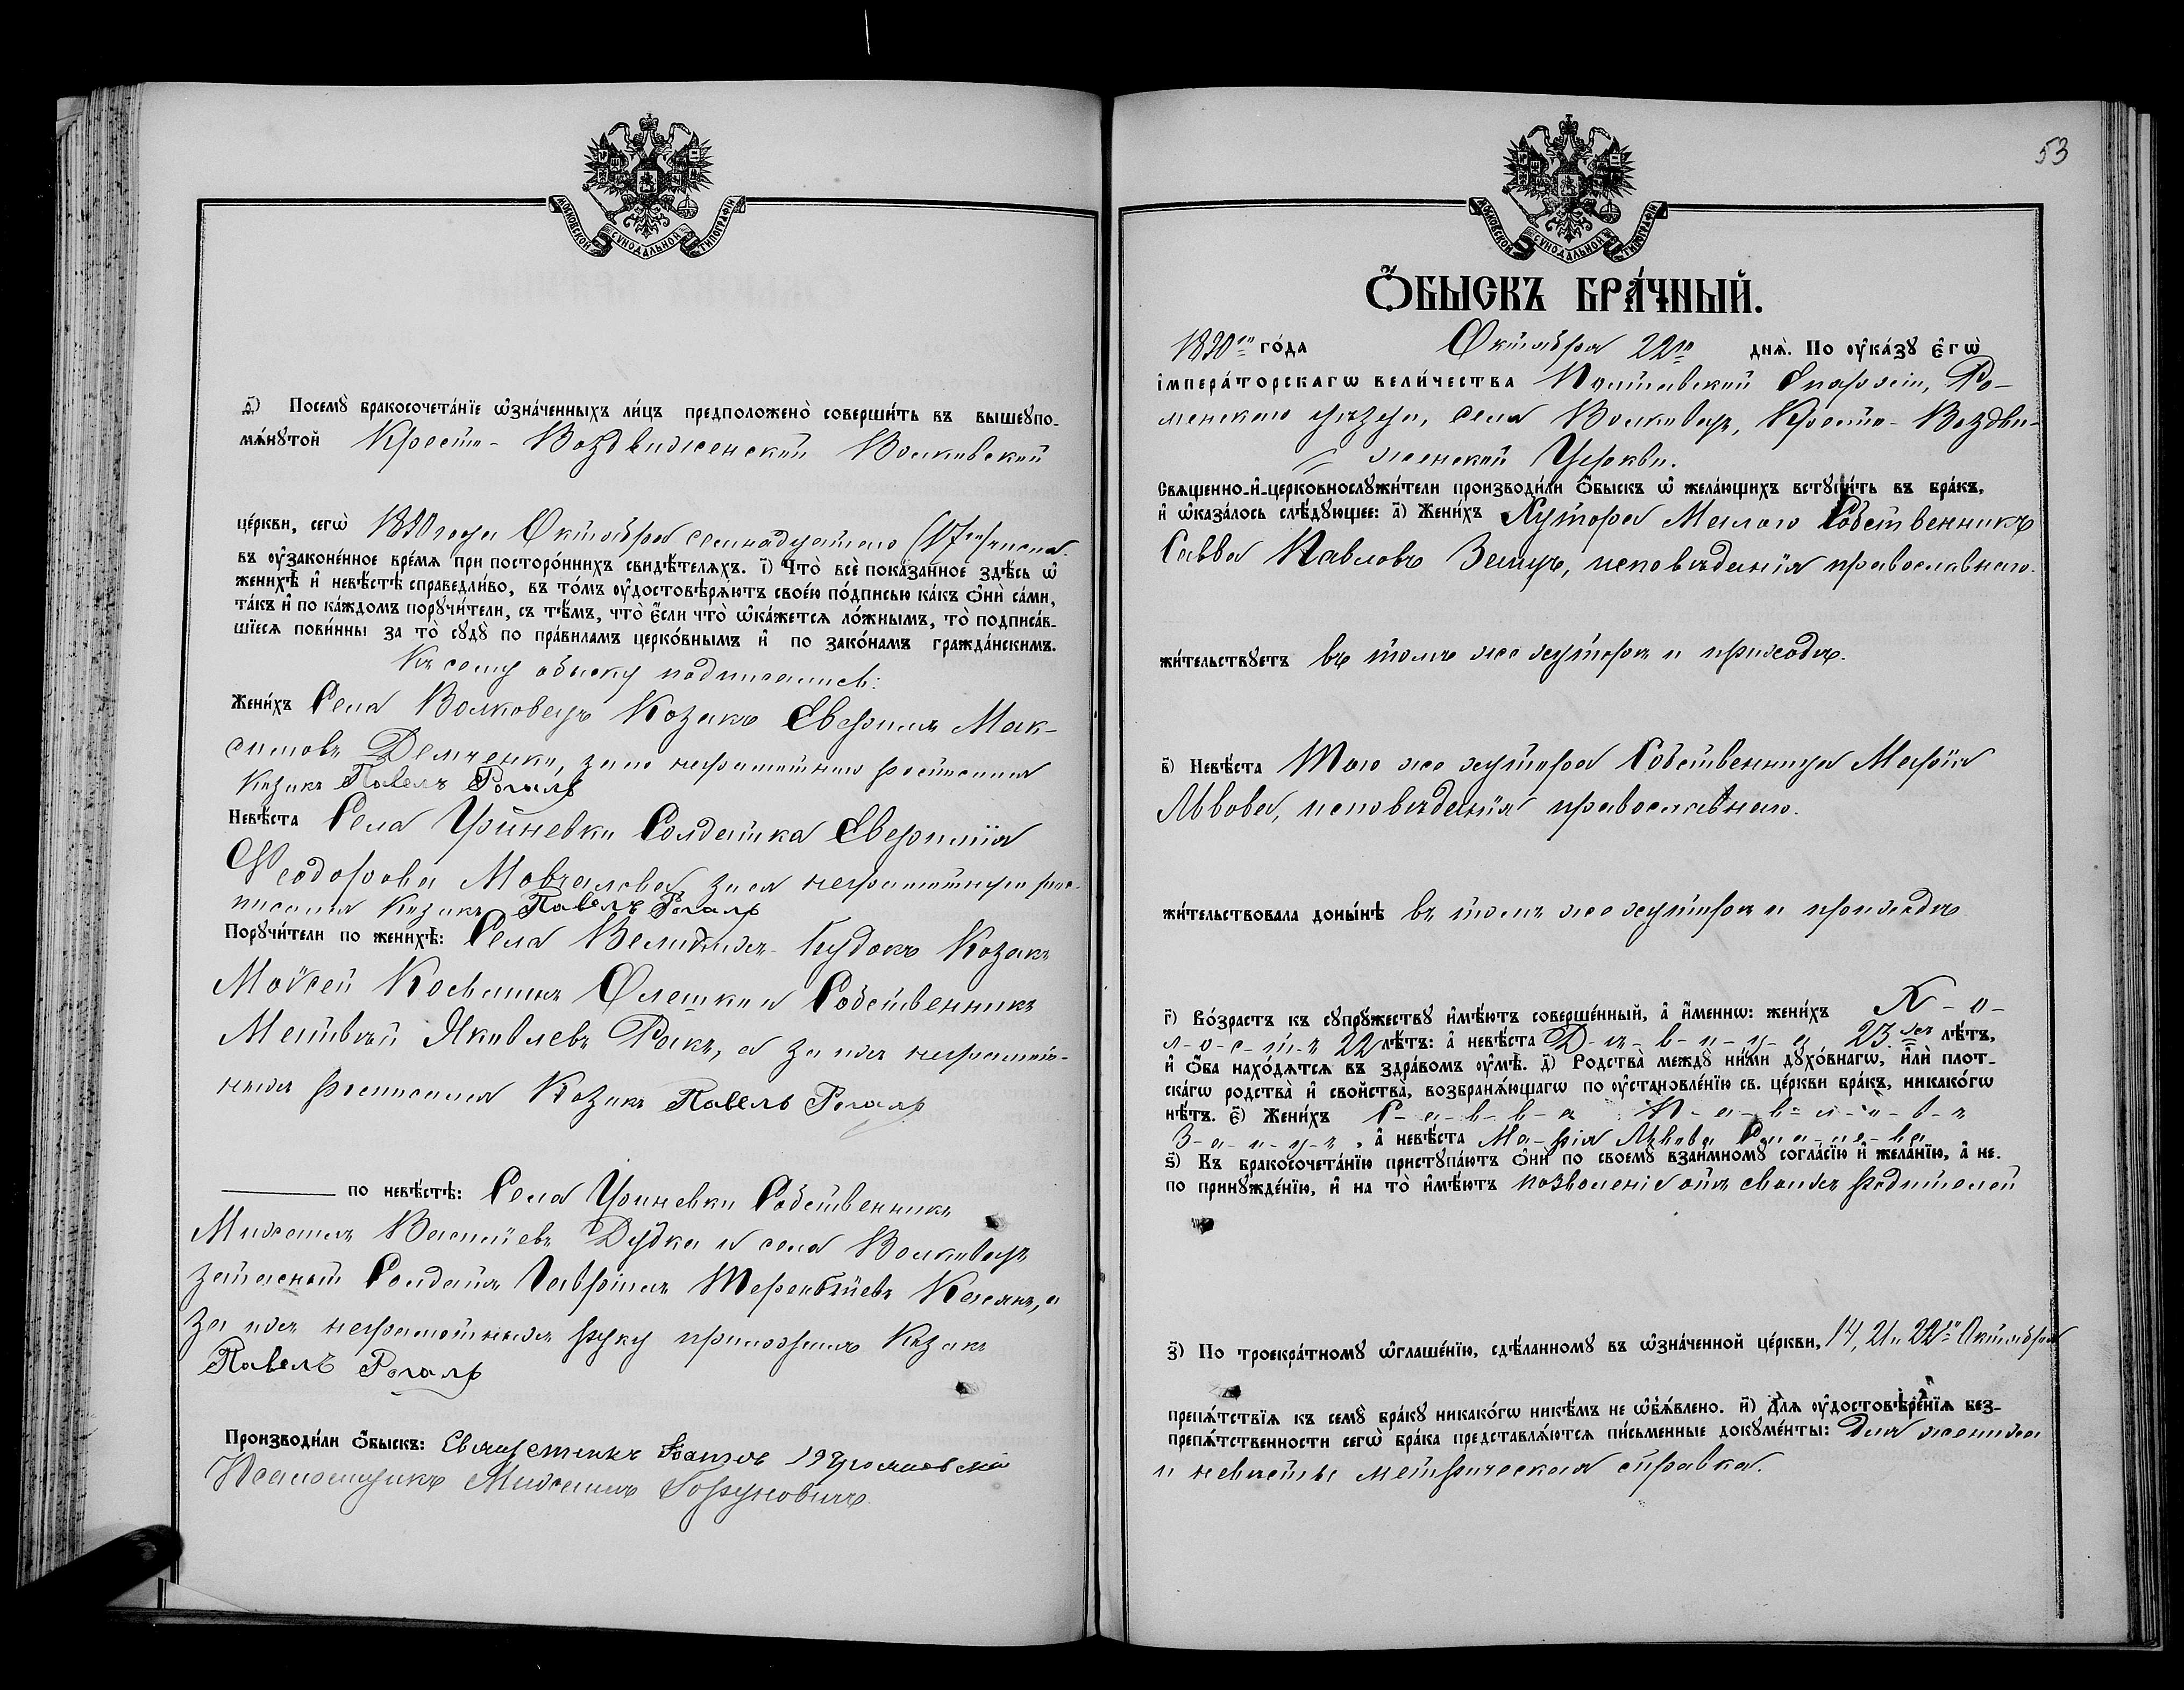 МОСКОВСКОЙ СѴНОДАЛЬНОЙ ТИПОГРАФІИ
д҃і) Посемꙋ̀ бракосочета́нїе ѡ҆зна́ченныхъ ли́цъ предположено̀ соверши́ть въ вышеꙋпо-
мѧ́нꙋтой Кресто-Воздвиженской Волковской
це́ркви, сегѡ̀ 1890 года Октября семнадцатого (17го) числа
въ ᲂу҆законе́нное вре́мѧ при посторо́ннихъ свидѣ́телѧхъ. і҃) Что̀ всѐ пока́занное здѣ́сь ѡ҆
женихѣ̀ и҆ невѣ́стѣ справедли́во, въ то́мъ ᲂу҆достовѣрѧ́ютъ свое́ю по́дписью ка́къ ѻ҆нѝ са́ми,
та́къ и҆ по ка́ждомъ порꙋчи́тели, съ тѣ́мъ, что̀ є҆́сли что̀ ѡ҆ка́жетсѧ ло́жнымъ, то̀ подписа́в-
шїесѧ пови́нны за то̀ сꙋдꙋ̀ по пра́виламъ церко́внымъ и҆ по зако́намъ гражда́нскимъ.
Къ сему обыску подписались:
Жени́хъ Села Волковецъ Козакъ Евфимъ Мак-
симовъ Демченко, за него неграмотного росписался
Козакъ Павелъ Рогаль
Невѣ́ста Села Уриневки Солдатка Евфимія
Ѳеодорова Мовчанова, за ея неграмотную рос-
писался Козакъ Павелъ Рогаль
Порꙋчи́тели по женихѣ̀: Села Великихъ-Будокъ Козакъ
Моѵсей Косминъ Олешко и Собственникъ
Матвѣй Яковлевъ Ракъ, а за ихъ неграмот-
ныхъ росписался Козакъ Павелъ Рогаль
по невѣ́стѣ: Села Уриневки Собственникъ
Михаилъ Василіевъ Дудка и села Волковецъ
запасный Солдатъ Гавріилъ Терентіевъ Касянъ, а
за ихъ неграмотныхъ руку приложилъ Козакъ
Павелъ Рогаль
Производи́ли ѻ҆́быскъ:
Псаломщикъ Михаилъ
53
МОСКОВСКОЙ СѴНОДАЛЬНОЙ ТИПОГРАФІИ
Ѻ҆́БЫСКЪ БРА́ЧНЫЙ.
1890го го́да Октября 22го днѧ̀. По ᲂу҆ка́зꙋ є҆гѡ̀
і҆мпера́торскагѡ вели́чества Полтавской Епархіи, Ро-
менского уѣзда, села Волковецъ, Кресто-Воздви-
женской Церкви.
Свѧщенно-и҆-церковнослꙋжи́тели производи́ли ѻ҆́быскъ ѡ҆ жела́ющихъ встꙋпи́ть въ бра́къ,
и҆ ѡ҆каза́лось слѣ́дꙋющее: а҃) Жени́хъ Хутора Малого Собственникъ
Савва Павловъ Заяцъ, исповѣданія православнаго.
жи́тельствꙋетъ въ томъ же хуторѣ и приходѣ.
в҃) Невѣ́ста Того же хутора Собственница Марія
Львова, исповѣданія православнаго.
жи́тельствовала доны́нѣ въ томъ же хуторѣ и приходѣ
г҃) Во́зрастъ къ сꙋпрꙋ́жествꙋ и҆мѣ́ютъ соверше́нный, а҆ и҆́меннѡ: жени́хъ Х-о-
л-о-с-т-ъ 22 лѣ́тъ: а҆ невѣ́ста Д-ѣ-в-и-ц-а 23 лѣ́тъ,
и҆ ѻ҆́ба нахо́дѧтсѧ въ здра́вомъ ᲂу҆мѣ̀. д҃) Родства̀ междꙋ̀ ни́ми дꙋхо́внагѡ, и҆лѝ плот-
ска́гѡ родства̀ и҆ свойства̀, возбранѧ́ющагѡ по ᲂу҆становле́нїю св. це́ркви бра́къ, никако́гѡ
нѣ́тъ. є҃) Жени́хъ С-а-в-в-а П-а-в-л-о-в-ъ
З-а-я-ц-ъ, а҆ невѣ́ста Ма-рія Львова
ѕ҃) Къ бракосочета́нїю пристꙋпа́ютъ ѻ҆нѝ по своемꙋ̀ взаи́мномꙋ согла́сїю и҆ жела́нїю, а҆ не.
по принꙋжде́нїю, и҆ на то̀ и҆мѣ́ютъ позволеніе отъ своихъ родителей
з҃) По троекра́тномꙋ ѡ҆глаше́нїю, сдѣ́ланномꙋ въ ѡ҆зна́ченной це́ркви, 14, 21 и 22го Октября
препѧ́тствїѧ къ семꙋ̀ бра́кꙋ никако́гѡ никѣ́мъ не ѡ҆б̾ѧ́влено. и҃) Длѧ ᲂу҆достовѣре́нїѧ без-
препѧ́тственности сегѡ̀ бра́ка представлѧ́ютсѧ пи́сьменные докꙋме́нты: для жениха
и невѣсты метрическая справка.